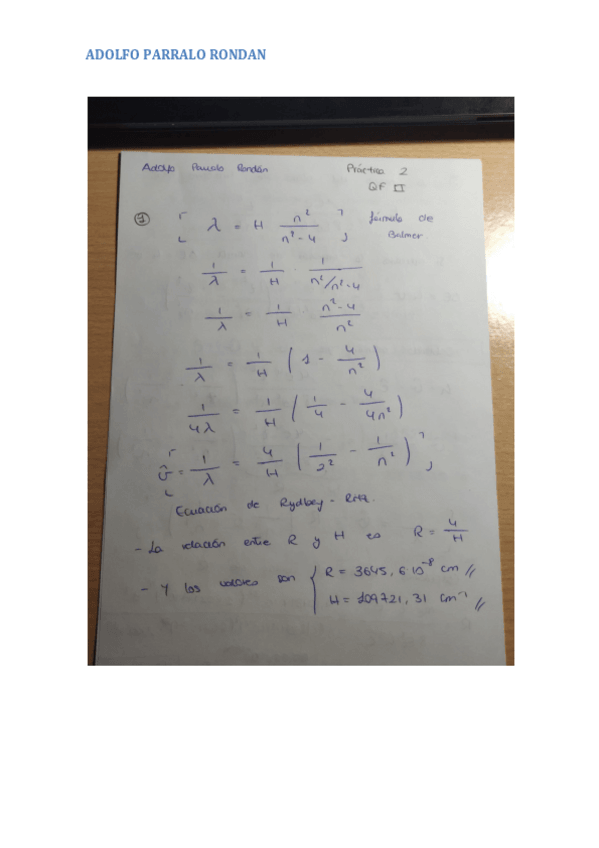 ADOLFO PARRALO RONDAN
Adolfo Parralo Rondán Práctica 2
QF II
① [ λ = H n²/(n²-4) ] fórmula de Balmer
1/λ = 1/H · 1/(n²/n²-4)
1/λ = 1/H · (n²-4)/n²
1/λ = 1/H (1 - 4/n²)
1/4λ = 1/H (1/4 - 4/4n²)
[ ῡ = 1/λ = 4/H (1/2² - 1/n²) ]
Ecuación de Rydbey - Ritz.
- La relación entre R y H es R = 4/H
- Y los valores son { R = 3645,6 10⁻⁸ cm //
H = 109721,31 cm⁻¹ //